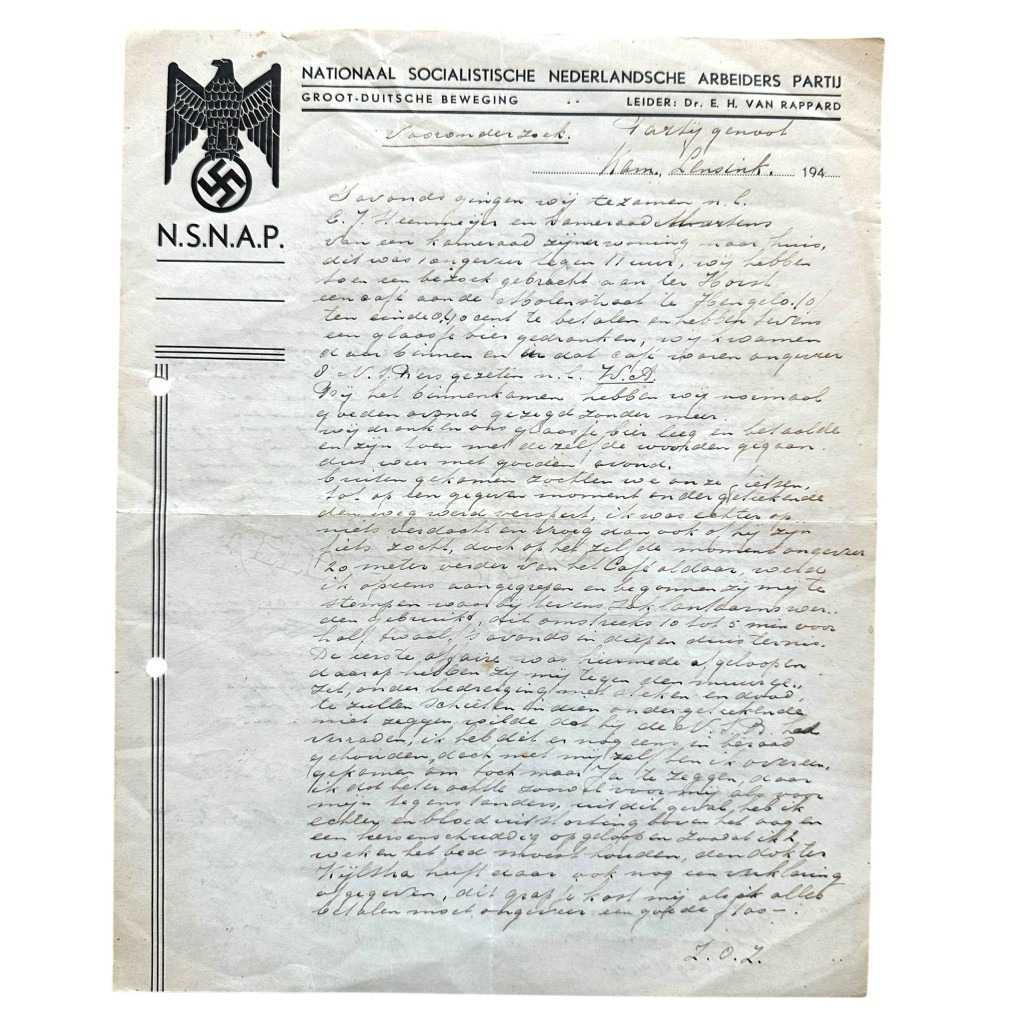 NATIONAAL SOCIALISTISCHE NEDERLANDSCHE ARBEIDERS PARTIJ
GROOT-DUITSCHE BEWEGING LEIDER: Dr. E. H. VAN RAPPARD
N.S.N.A.P.
Vooronderzoek. Partijgenoot
Kam. Lensink. 194
S'avonds gingen wij tezamen n.l.
C. J. Heenmeijer en kameraad Martens
van een kameraad zijner woning naar huis,
dit was ongeveer tegen 11 uur, wij hebben
toen een bezoek gebracht aan ter Horst
een café aan de Molenstraat te Hengelo /o
ten einde 0,40 cent te betalen en hebben tevens
een glaasje bier gedronken, wij kwamen
daar binnen en in dat café waren ongeveer
8 N.S.Bers gezeten n.l. W.A.
Bij het binnenkomen hebben wij normaal
goeden avond gezegd zonder meer.
wij dronken ons glaasje bier leeg en betaalde
en zijn toen met dezelfde woorden gegaan.
dus weer met goeden avond.
Buiten gekomen zochten we onze fietsen,
tot op een gegeven moment ondergeteekende
den weg werd versperd, ik was echter op
niets verdacht en vroeg dan ook of hij zijn
fiets zocht, doch op het zelfde moment ongeveer
20 meter verder van het Café aldaar, werd
ik opeens aangegrepen en begonnen zij mij te
stompen waar bij tevens zaklantaarns wer-
den gebruikt, dit omstreeks 10 tot 5 min voor
half twaalf 's avonds in diepen duisternis.
De eerste affaire was hiermede afgeloopen
daarop hebben zij mij tegen den muur ge-
zet, onder bedreiging met en dood
te zullen schieten indien ondergeteekende
niet zeggen wilde dat hij de N.S.B. had
verraden, ik heb dit er nog eens in beraad
gehouden, doch met mij zelf ben ik overeen
gekomen om toch maar Ja te zeggen, daar
ik dat beter achtte zoowel voor mij als voor
mijn tegenstanders, uit dit geval heb ik
echter en bloeduitstorting boven het oog en
een hersenschudding opgeloopen zoodat ik 2
weken het bed moest houden, den dokter
Kijlstra heeft daar ook nog een verklaring
afgegeven, dit grapje kost mij als ik alles
betalen moet ongeveer een goede f 100-.
Z.O.Z.